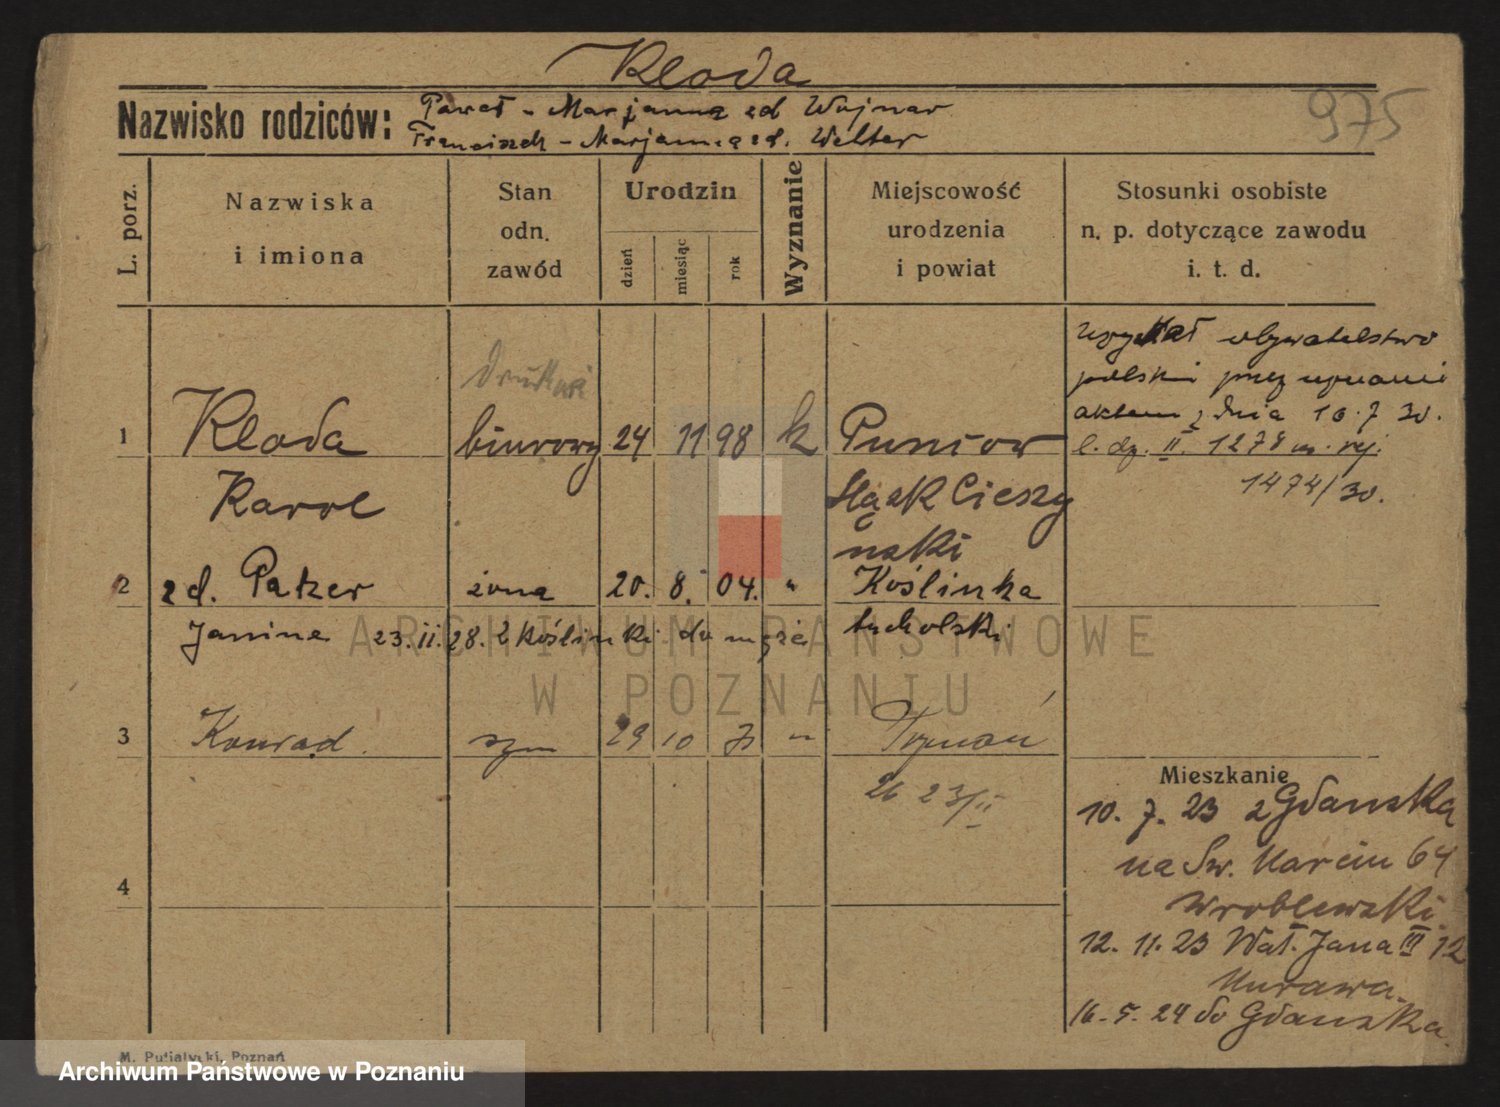 Kłoda
Nazwisko rodziców: Paweł - Marjanna zd Wojnar
Franciszek - Marjanna zd. Welter
975
L. porz.
Nazwiska
i imiona
Stan
odn.
zawód
Urodzin
dzień
miesiąc
rok
Wyznanie
Miejscowość
urodzenia
i powiat
Stosunki osobiste
n. p. dotyczące zawodu
i. t. d.
uzyskał obywatelstwo
polskie przez uznanie
aktem z dnia 10.7 30.
l. dz. II. 1278 m. rej.
1474/30.
Drukarz
1 Kłoda biurowy 24 11 98 k Punców
Karol Śląsk Cieszy
ński
2 zd. Patzer żona 20. 8. 04. " Koślinka
Janina 23.II.28. z Koślinki do męża tucholski
ARCHIWUM PAŃSTWOWE
W POZNANIU
3 Konrad syn 29 10 " Poznań
26 23/II
Mieszkanie
10. 7. 23 z Gdańska
na Św. Marcin 64
Wroblewski.
4
12. 11. 23 Wał. Jana III 12
Murawa.
16. 5. 24 do Gdańska.
M. Putiatycki, Poznań
Archiwum Państwowe w Poznaniu